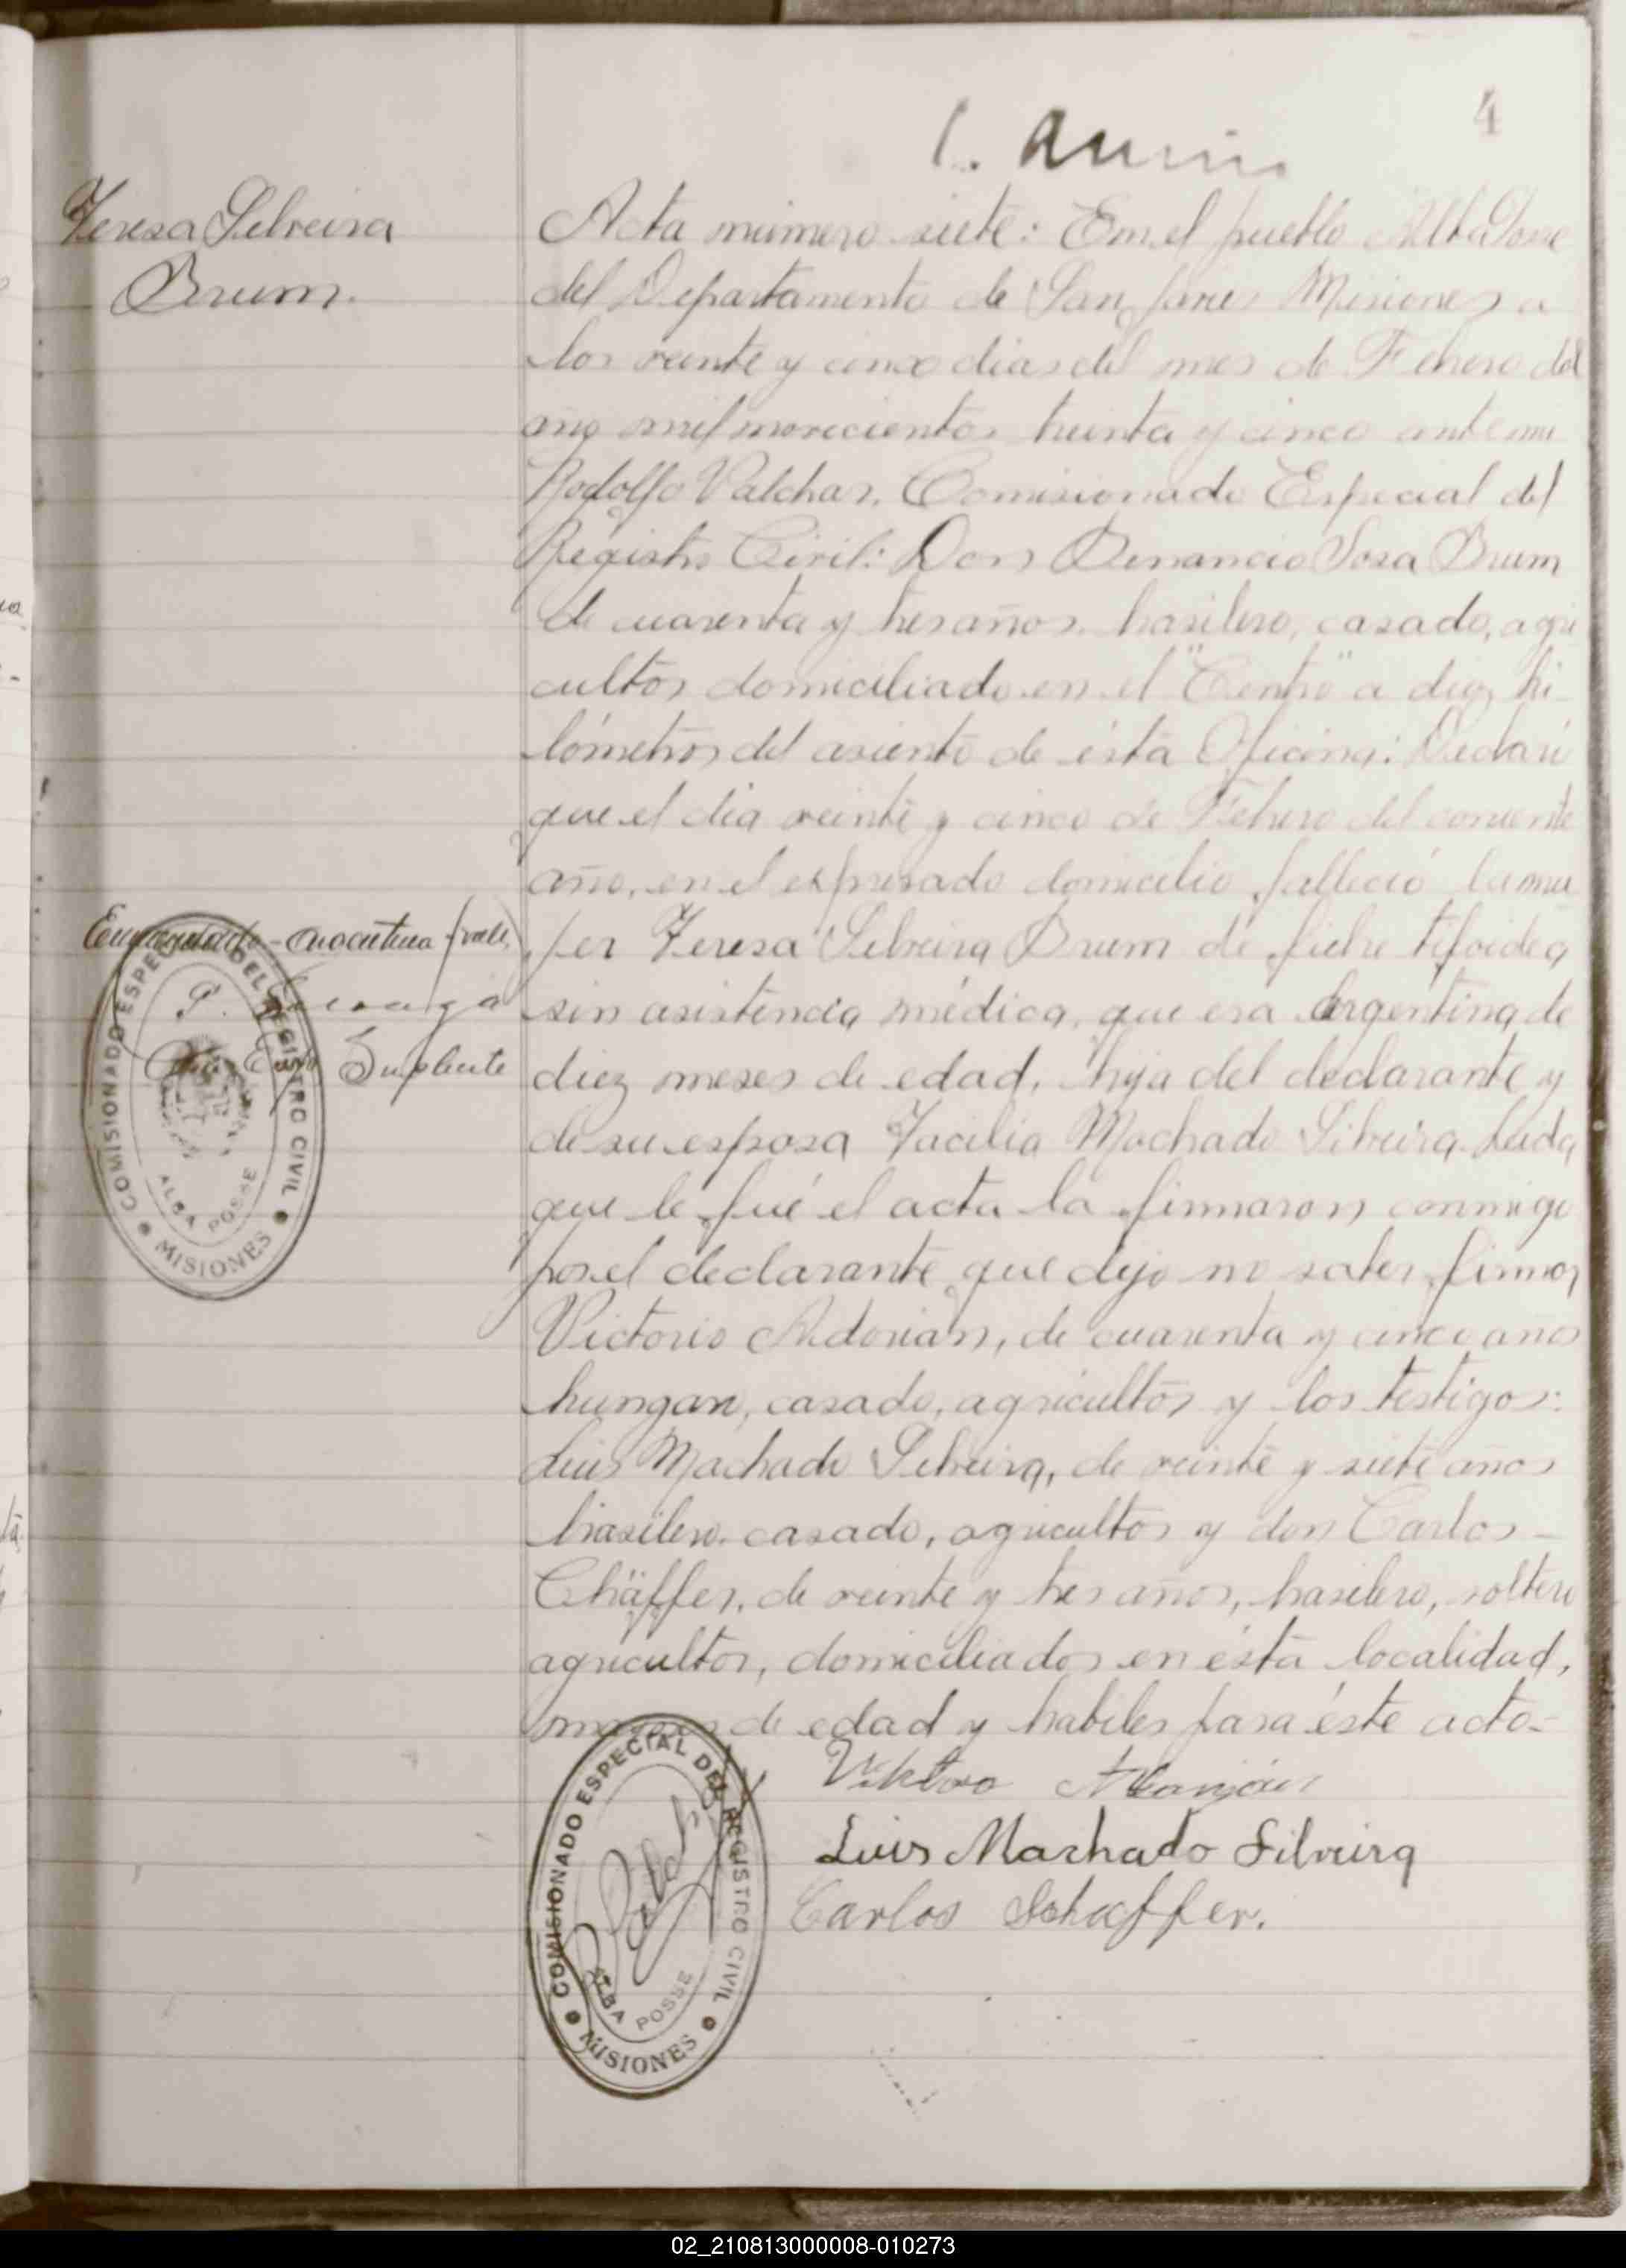 4
Teresa Silveira
Brum.
Acta número siete: En el pueblo Alba Posse
del Departamento de San Javier Misiones a
los veinte y cinco dias del mes de Febrero del
año mil novecientos treinta y cinco ante mi
Rodolfo Valchar. Comisionado Especial del
Registro Civil: Don Benancio Sosa Brum
de cuarenta y tres años. brasilero, casado, agri
cultor domiciliado en el "Centro" a diez ki-
lómetros del asiento de ésta Oficina: Declaró
que el dia veinte y cinco de Febrero del corriente
año, en el expresado domicilio falleció la mu
jer Teresa Silveira Brum de fiebre tifoidea
sin asistencia médica, que era Argentina de
diez meses de edad, hija del declarante y
de su esposa Machado Silveira. Leida
que le fué el acta la firmaron conmigo
por el declarante que dijo no saber firmar
Victorio de cuarenta y cinco años
hungaro, casado, agricultor y los testigos:
Luis Machado Silveira, de veinte y siete años
brasilero. casado, agricultor y don Carlos -
Chäffer, de veinte y tres años, brasilero, soltero
agricultor, domiciliados en ésta localidad,
mayores de edad y habiles para éste acto.-
Luis Machado Silveira
Carlos Schaffer.
Suplente
COMISIONADO ESPECIAL DEL REGISTRO CIVIL
ALBA POSSE
MISIONES
COMISIONADO ESPECIAL DEL REGISTRO CIVIL
ALBA POSSE
MISIONES
02_210813000008-010273